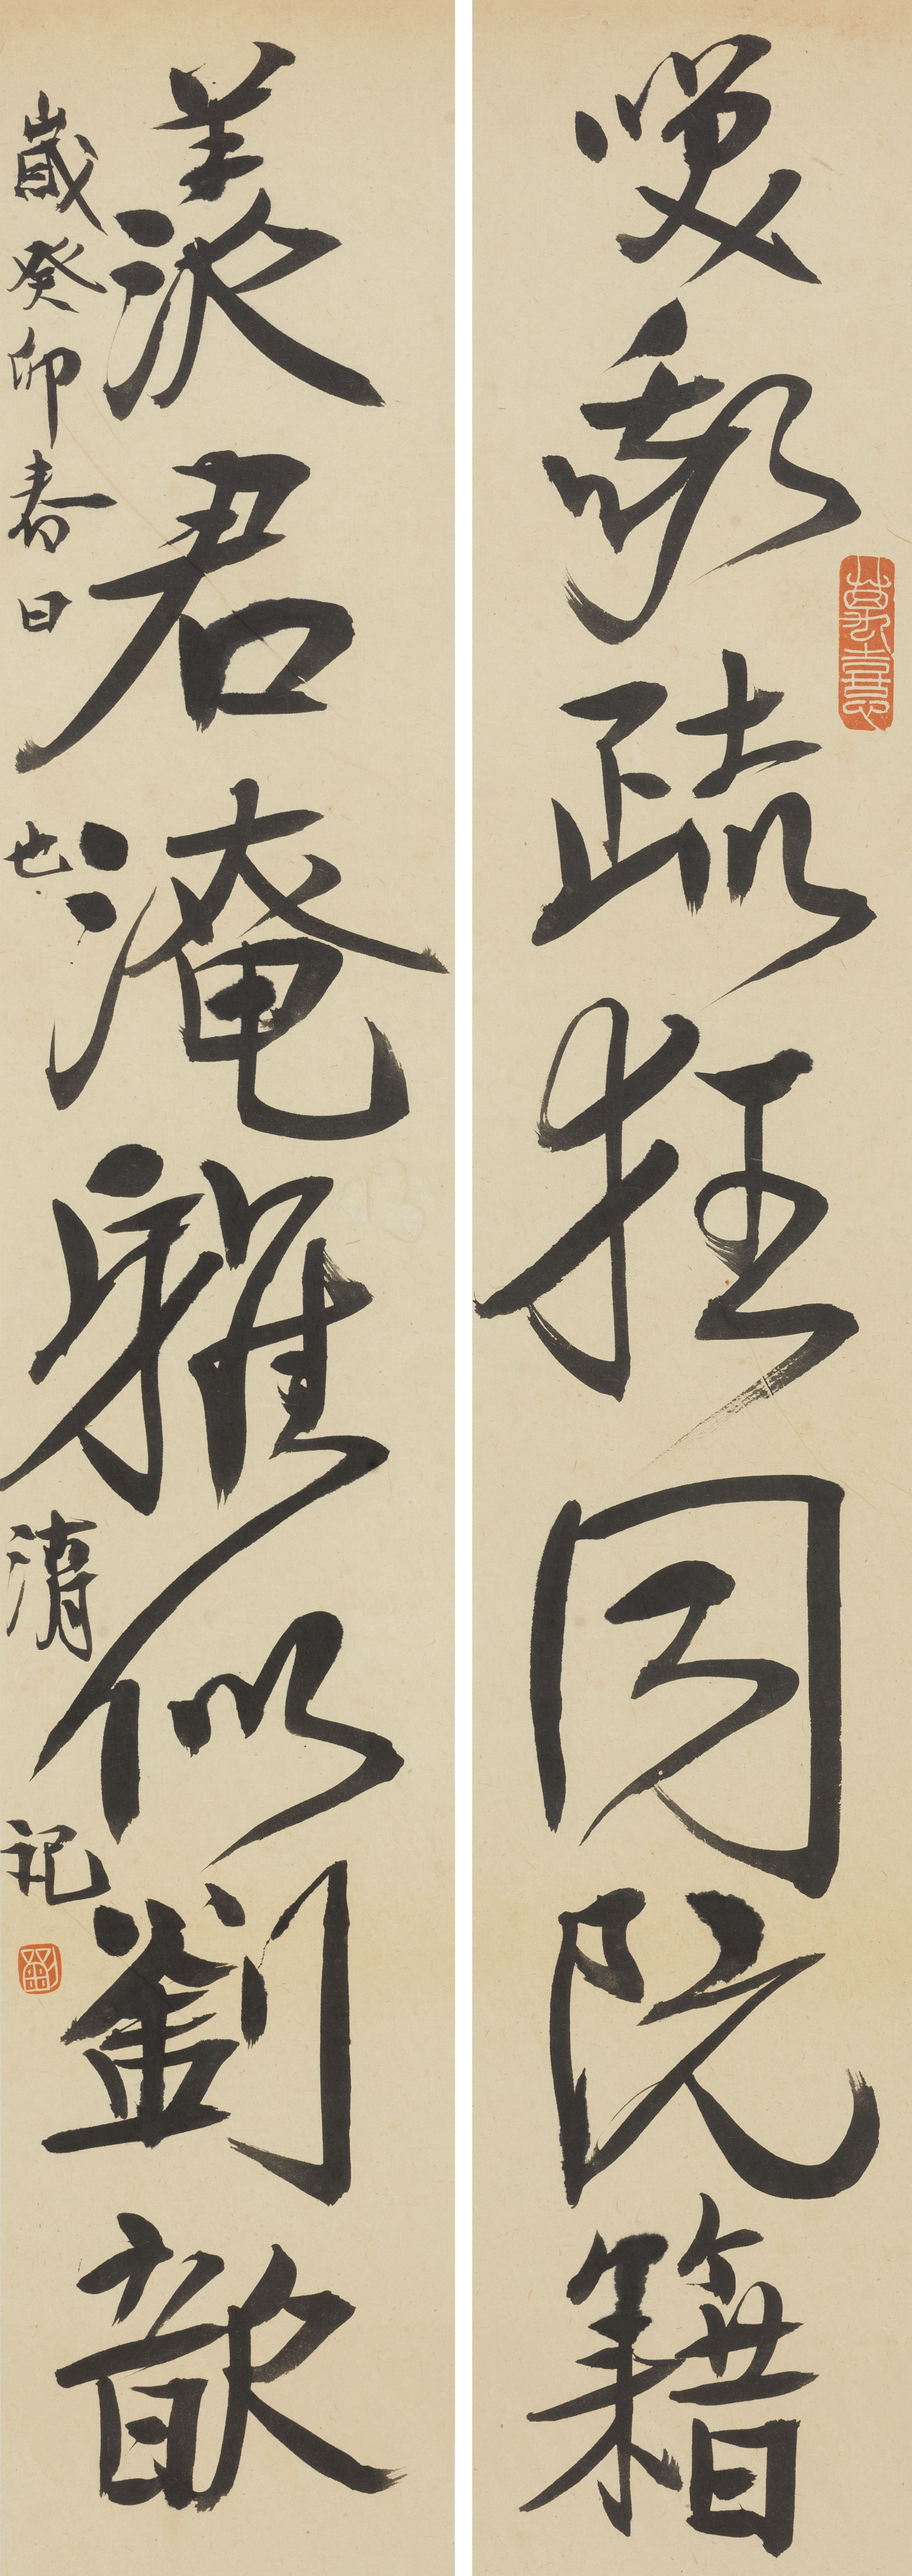 嘆我疏狂同阮籍
羨君淹雅似劉歆
歲癸卯春日也清記